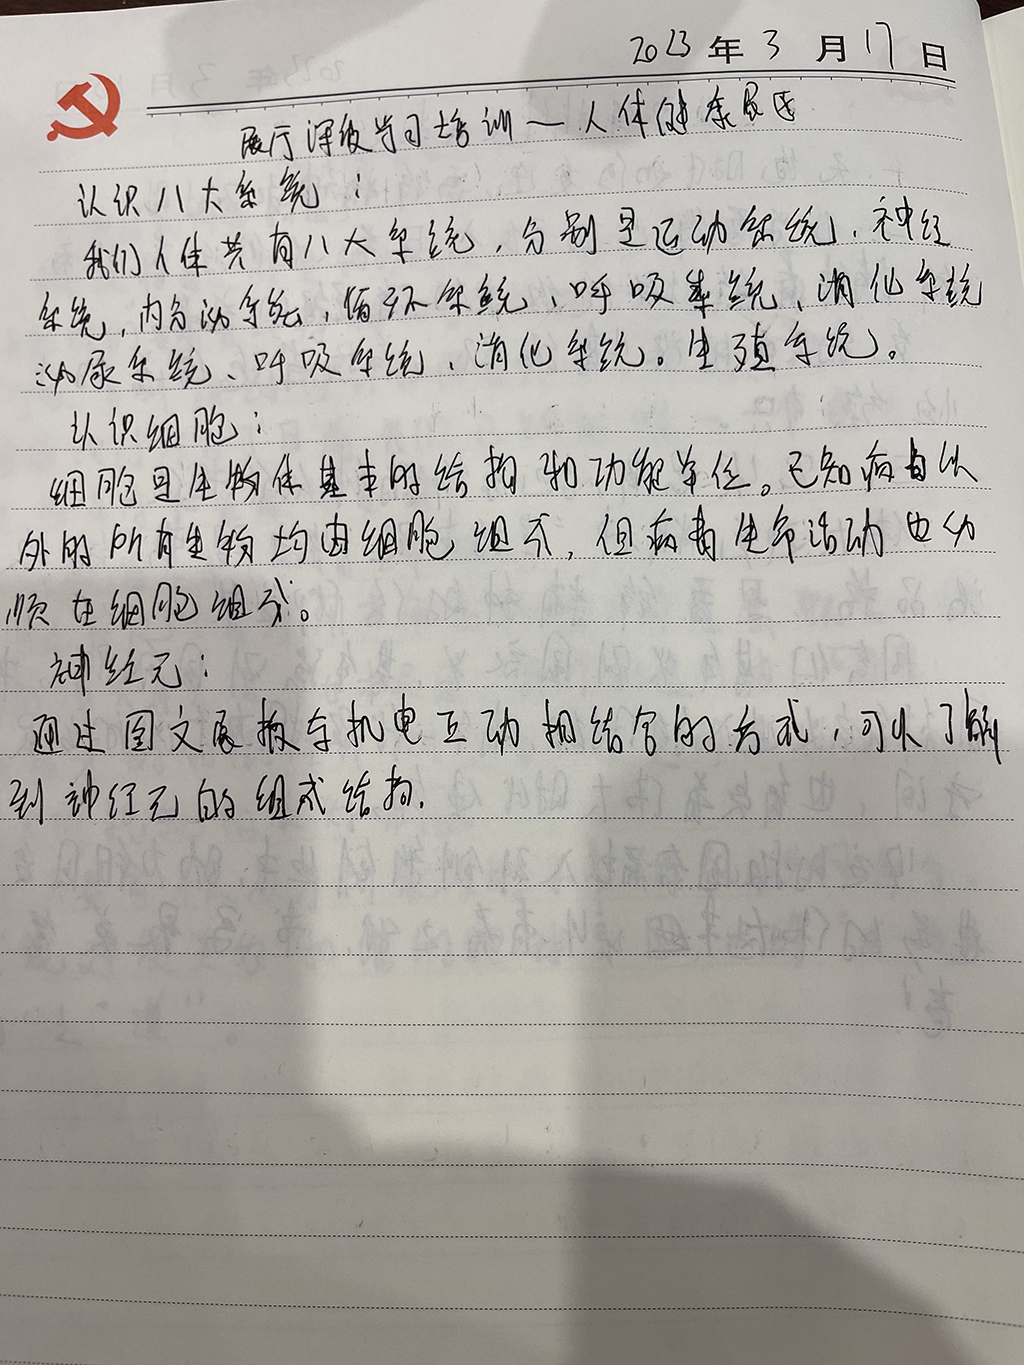 2023年3月17日
展厅深度学习培训—人体健康展区
认识八大系统：
我们人体共有八大系统，分别是运动系统、神经
系统，内分泌系统，循环系统、呼吸系统、消化系统
泌尿系统、呼吸系统、消化系统。生殖系统。
认识细胞：
细胞是生物体基本的结构和功能单位。已知病毒以
外的所有生物均由细胞组成，但病毒生命活动也必
须在细胞组成。
神经元：
通过图文展板与机电互动相结合的方式，可以了解
到神经元的组成结构.